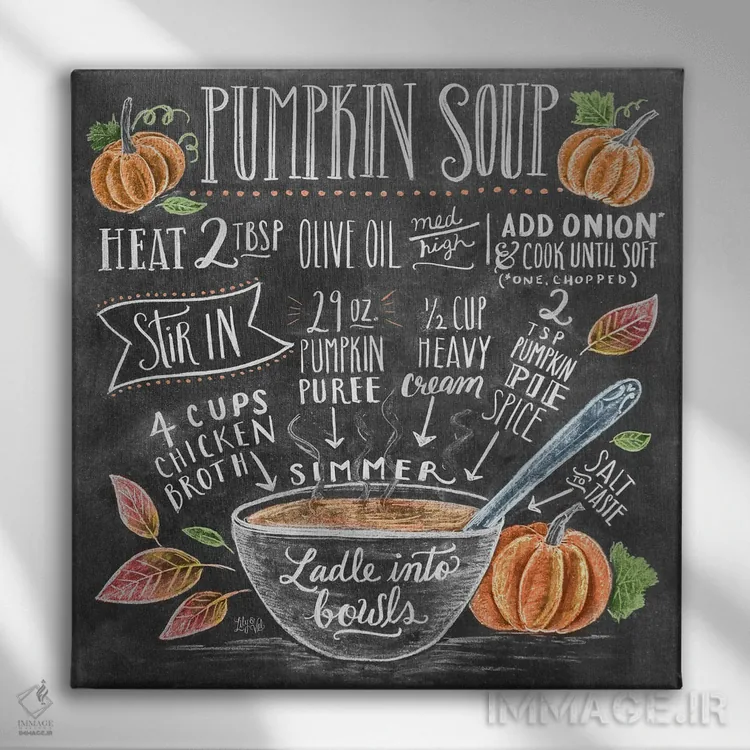 PUMPKIN SOUP
HEAT 2 TBSP OLIVE OIL med high
ADD ONION*
& COOK UNTIL SOFT
(*ONE, CHOPPED)
STIR IN
4 CUPS
CHICKEN
BROTH
29 OZ.
PUMPKIN
PUREE
1/2 CUP
HEAVY
cream
2
TSP
PUMPKIN
PIE
SPICE
SALT
TO TASTE
SIMMER
Ladle into
bowls
Lily & Val
IMMAGE
IMMAGE.IR
IMMAGE.IR